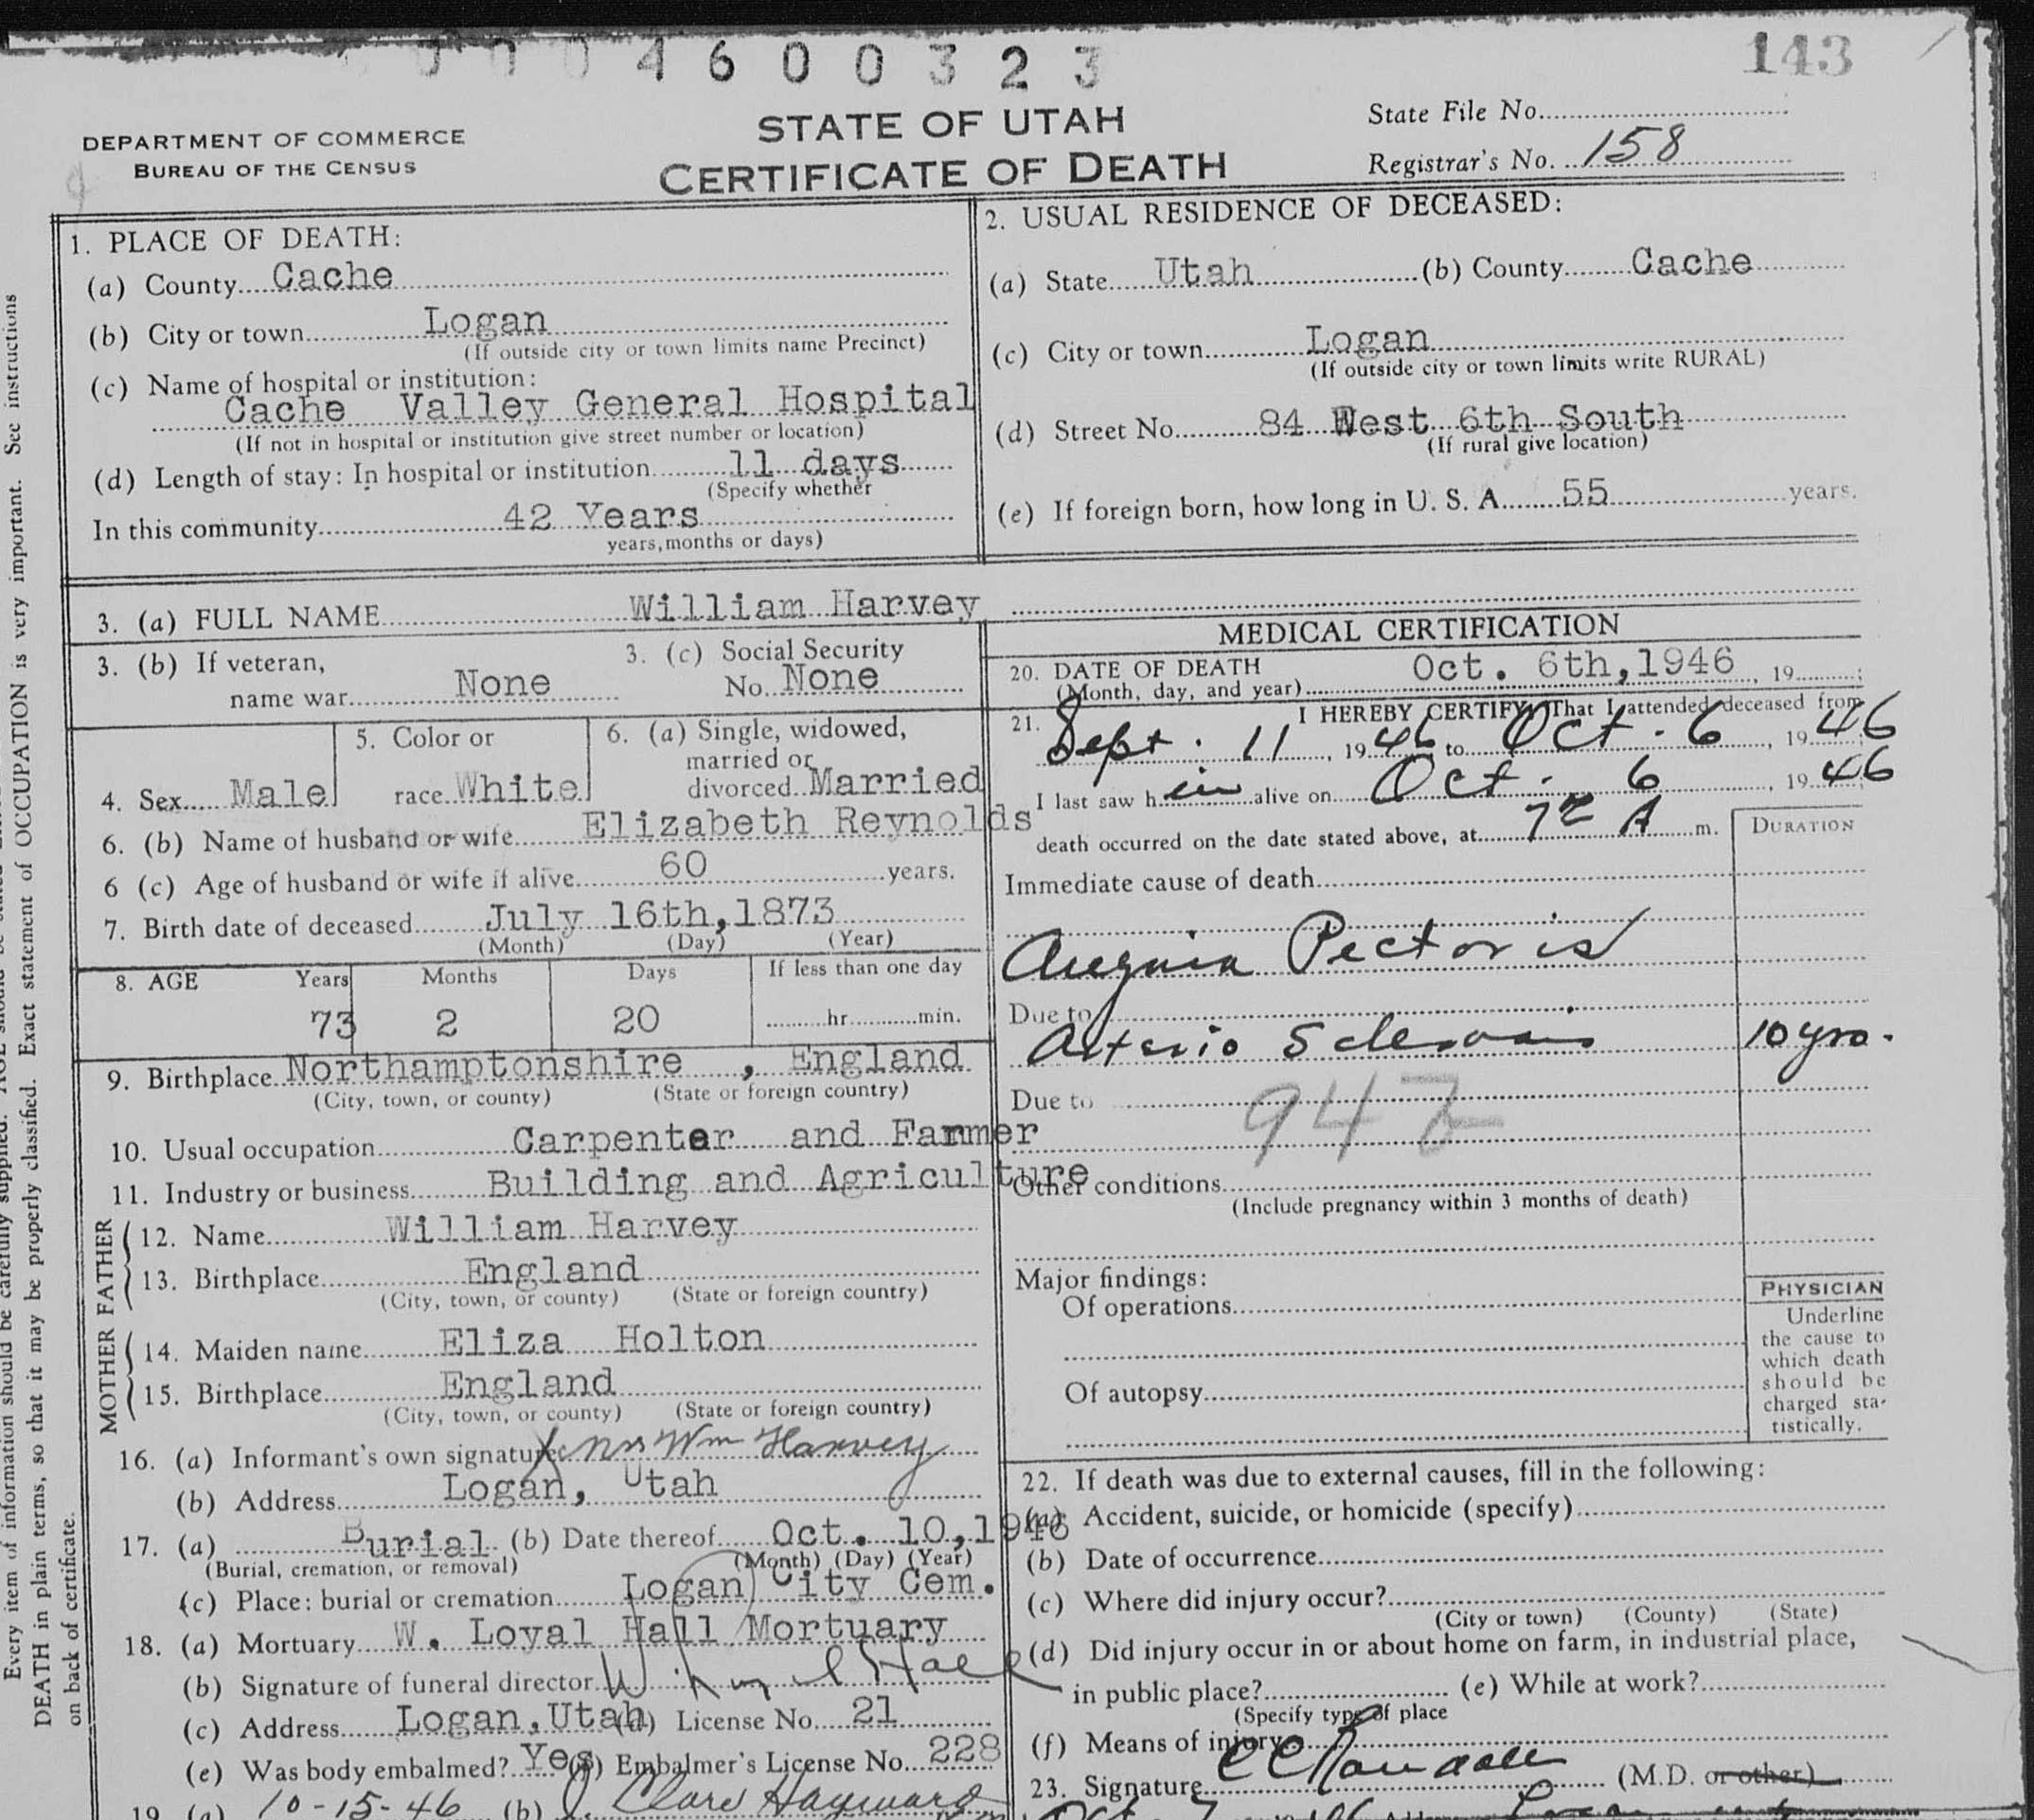 4 6 0 0 3 2 3
143
DEPARTMENT OF COMMERCE
BUREAU OF THE CENSUS
STATE OF UTAH
CERTIFICATE OF DEATH
State File No.
Registrar's No. 158
1. PLACE OF DEATH:
(a) County Cache
(b) City or town Logan
(If outside city or town limits name Precinct)
(c) Name of hospital or institution:
Cache Valley General Hospital
(If not in hospital or institution give street number or location)
(d) Length of stay: In hospital or institution 11 days
(Specify whether
In this community 42 Years
years, months or days)
2. USUAL RESIDENCE OF DECEASED:
(a) State Utah (b) County Cache
(c) City or town Logan
(If outside city or town limits write RURAL)
(d) Street No. 84 West 6th South
(If rural give location)
(e) If foreign born, how long in U. S. A. 55 years.
3. (a) FULL NAME William Harvey
3. (b) If veteran,
name war None
3. (c) Social Security
No. None
4. Sex Male
5. Color or
race White
6. (a) Single, widowed,
married or
divorced Married
6. (b) Name of husband or wife Elizabeth Reynolds
6 (c) Age of husband or wife if alive 60 years.
7. Birth date of deceased July 16th, 1873
(Month) (Day) (Year)
8. AGE Years Months Days If less than one day
73 2 20 hr. min.
9. Birthplace Northamptonshire , England
(City, town, or county) (State or foreign country)
10. Usual occupation Carpenter and Farmer
11. Industry or business Building and Agriculture
FATHER
12. Name William Harvey
13. Birthplace England
(City, town, or county) (State or foreign country)
MOTHER
14. Maiden name Eliza Holton
15. Birthplace England
(City, town, or county) (State or foreign country)
16. (a) Informant's own signature x Mrs Wm Harvey
(b) Address Logan, Utah
17. (a) Burial (b) Date thereof Oct. 10, 1946
(Burial, cremation, or removal) (Month) (Day) (Year)
(c) Place: burial or cremation Logan City Cem.
18. (a) Mortuary W. Loyal Hall Mortuary
(b) Signature of funeral director W. Loyal Hall
(c) Address Logan, Utah (d) License No. 21
(e) Was body embalmed? Yes (f) Embalmer's License No. 228
19. (a) 10-15-46 (b) J. Clare Hayward
MEDICAL CERTIFICATION
20. DATE OF DEATH
(Month, day, and year) Oct. 6th, 1946, 19 ;
21. I HEREBY CERTIFY, That I attended deceased from
Sept. 11, 1946 to Oct. 6, 1946
I last saw h im alive on Oct. 6, 1946
death occurred on the date stated above, at 7 A m.
DURATION
Immediate cause of death
Angina Pectoris
Due to
Arterio Sclerosis 10 yrs.
Due to
942
Other conditions
(Include pregnancy within 3 months of death)
Major findings:
Of operations
Of autopsy
PHYSICIAN
Underline
the cause to
which death
should be
charged sta-
tistically.
22. If death was due to external causes, fill in the following:
(a) Accident, suicide, or homicide (specify)
(b) Date of occurrence
(c) Where did injury occur?
(City or town) (County) (State)
(d) Did injury occur in or about home on farm, in industrial place,
in public place? (e) While at work?
(Specify type of place
(f) Means of injury
23. Signature C C Randall (M.D. or other)
Every item of information should be carefully supplied.
DEATH in plain terms, so that it may be properly classified. Exact statement of OCCUPATION is very important. See instructions
on back of certificate.